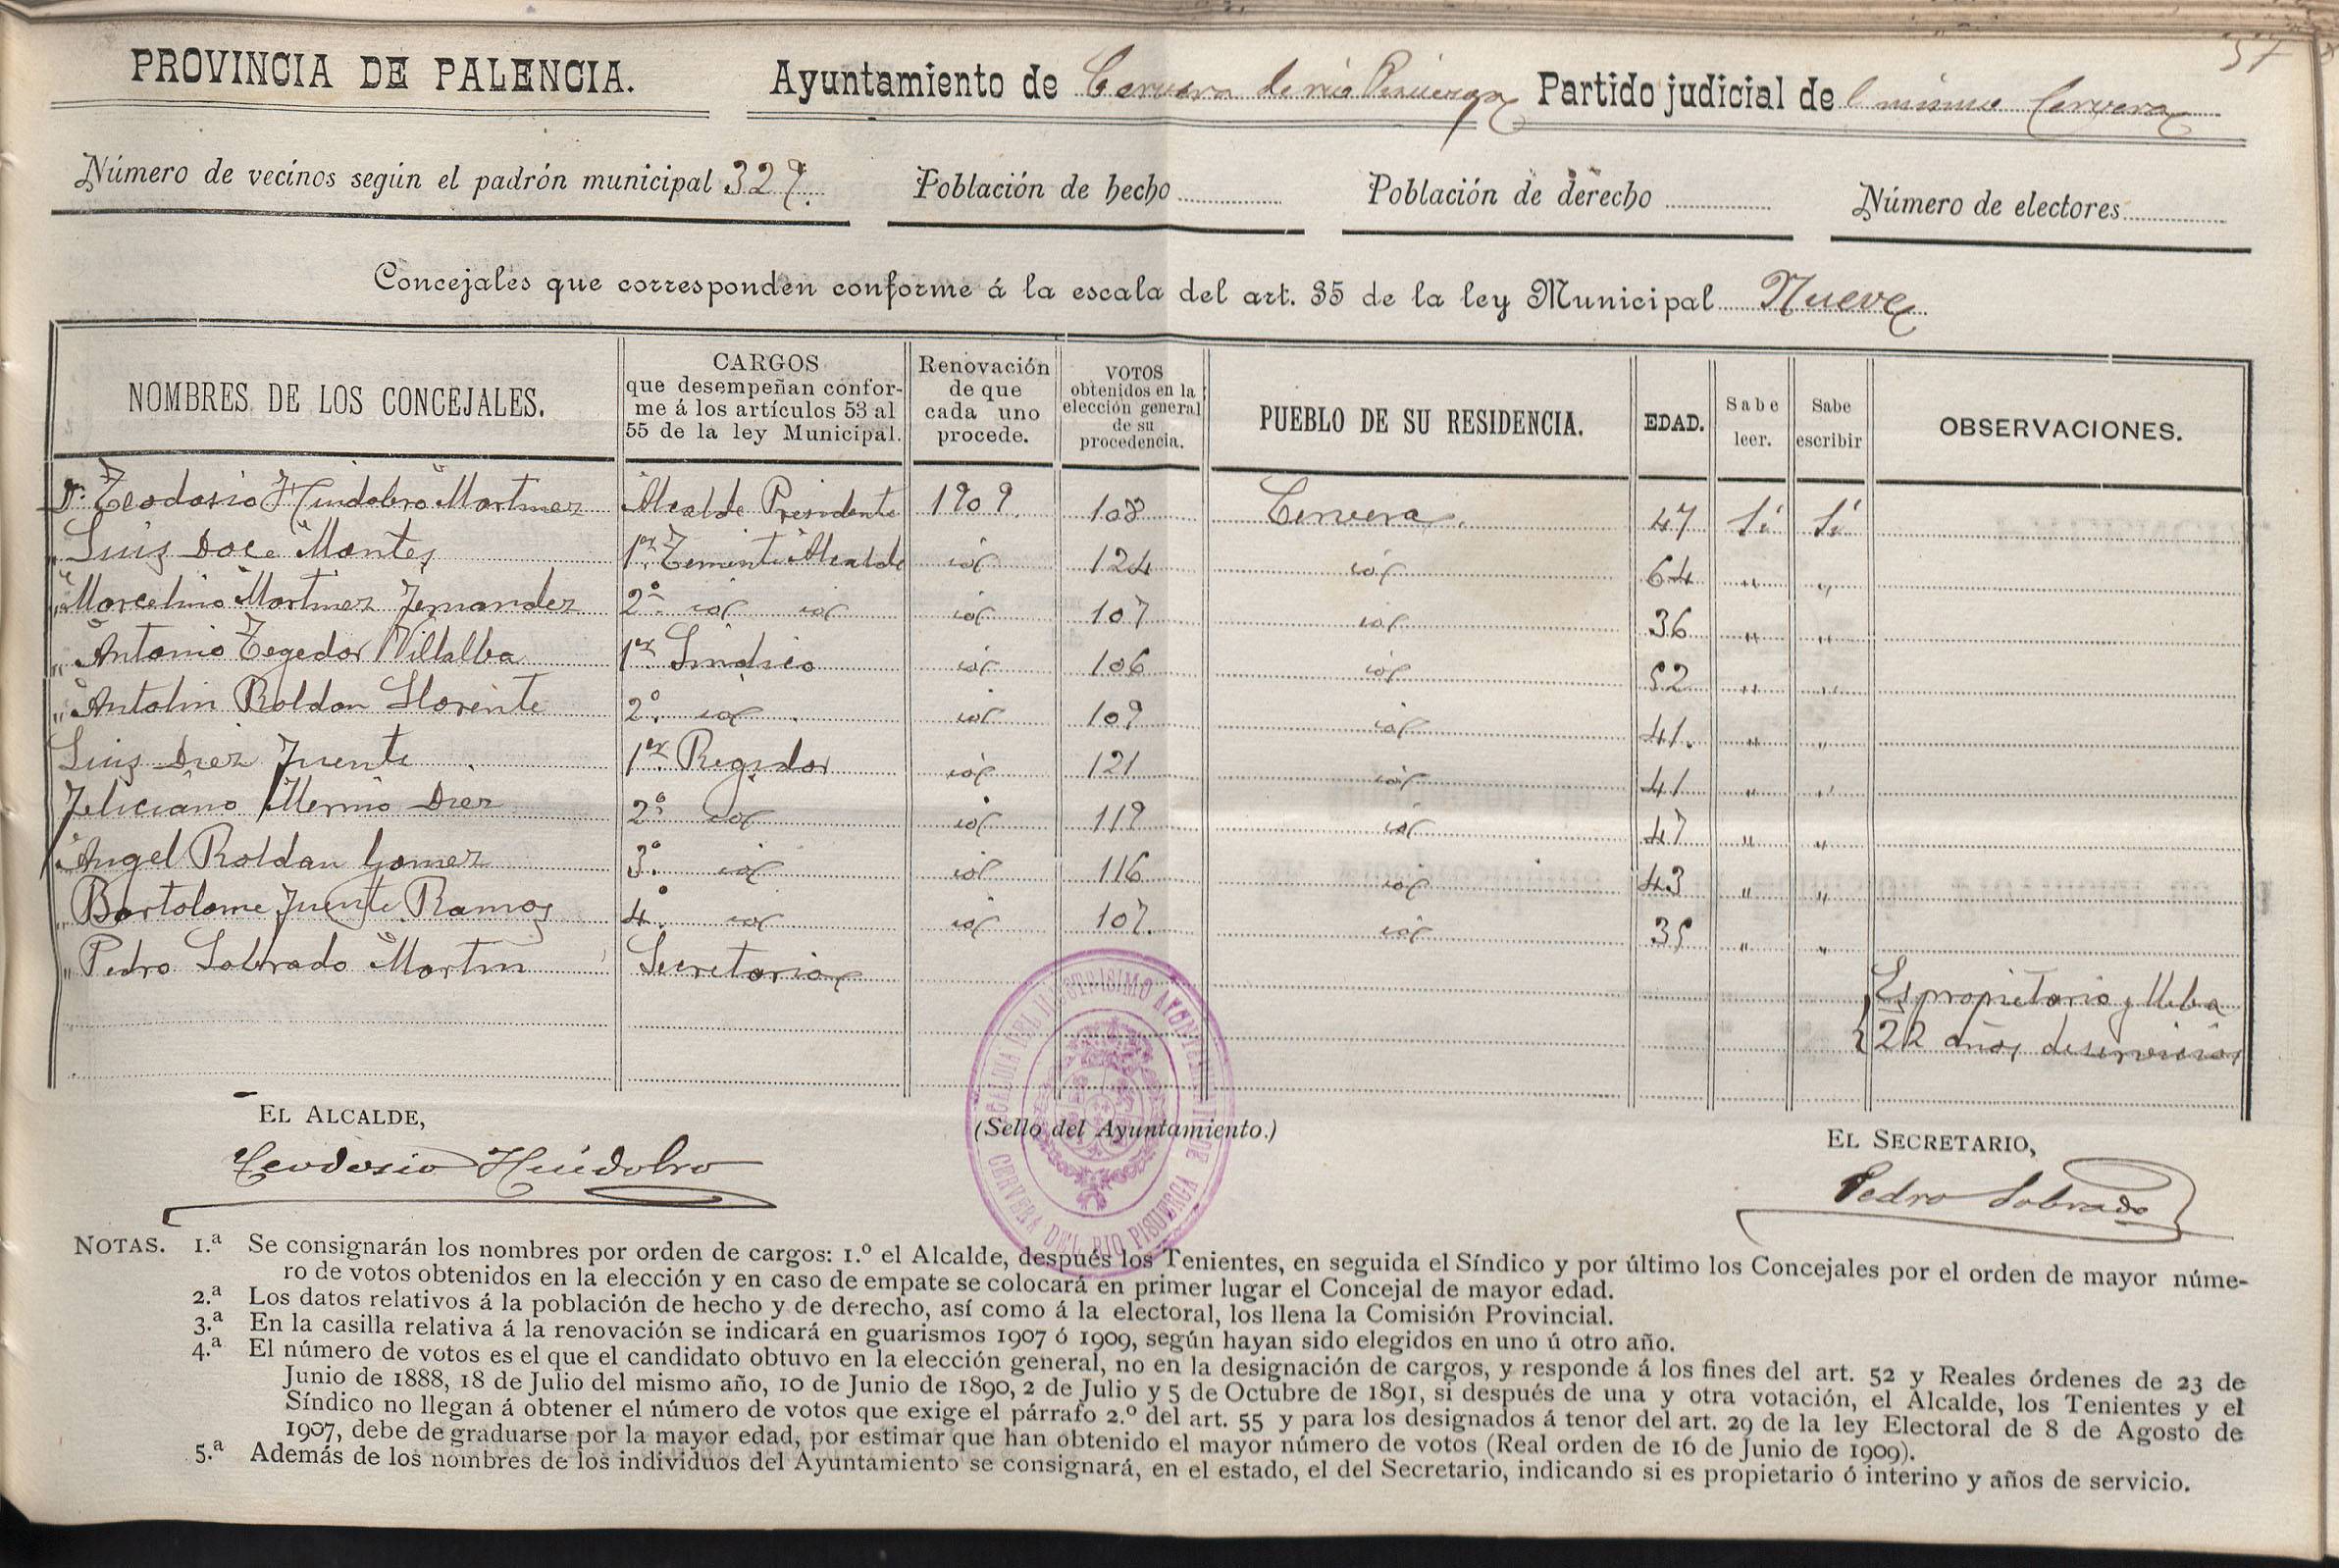 57
PROVINCIA DE PALENCIA. Ayuntamiento de Cervera de rio Pisuerga Partido judicial de l mismo Cervera
Número de vecinos según el padrón municipal 327. Población de hecho Población de derecho Número de electores
Concejales que corresponden conforme á la escala del art. 35 de la ley Municipal Nueve
NOMBRES DE LOS CONCEJALES. CARGOS que desempeñan confor-me á los artículos 53 al 55 de la ley Municipal. Renovación de que cada uno procede. VOTOS obtenidos en la elección general de su procedencia. PUEBLO DE SU RESIDENCIA. EDAD. Sabe leer. Sabe escribir OBSERVACIONES.
D. Teodosio Huidobro Martinez Alcalde Presidente 1909. 108 Cervera. 47 Sí Sí
" Luis Doce Montes 1er Teniente Alcalde id 124 id 64 " "
" Marcelino Martinez Fernandez 2º id id id 107 id 36 " "
" Antonio Tegedor Villalba 1er Sindico id 106 id 52 " "
" Antolin Roldan Llorente 2º id id 109 id 41. " "
Luis Diez Fuente 1er Regidor id 121 id 41 " "
Feliciano Merino Diez 2º id id 119 id 47 " "
" Angel Roldan Gomez 3º id id 116 id 43 " "
" Bartolome Fuente Ramos 4º id id 107. id 35 " "
" Pedro Sobrado Martin Secretario Es propietario y lleba
22 años de servicios
EL ALCALDE,
Teodosio Huidobro
(Sello del Ayuntamiento.)
ALCALDIA DEL ILUSTRISIMO AYUNTAMIENTO DE CERVERA DEL RIO PISUERGA
EL SECRETARIO,
Pedro Sobrado
NOTAS. 1.ª Se consignarán los nombres por orden de cargos: 1.º el Alcalde, después los Tenientes, en seguida el Síndico y por último los Concejales por el orden de mayor núme-
ro de votos obtenidos en la elección y en caso de empate se colocará en primer lugar el Concejal de mayor edad.
2.ª Los datos relativos á la población de hecho y de derecho, así como á la electoral, los llena la Comisión Provincial.
3.ª En la casilla relativa á la renovación se indicará en guarismos 1907 ó 1909, según hayan sido elegidos en uno ú otro año.
4.ª El número de votos es el que el candidato obtuvo en la elección general, no en la designación de cargos, y responde á los fines del art. 52 y Reales órdenes de 23 de
Junio de 1888, 18 de Julio del mismo año, 10 de Junio de 1890, 2 de Julio y 5 de Octubre de 1891, si después de una y otra votación, el Alcalde, los Tenientes y el
Síndico no llegan á obtener el número de votos que exige el párrafo 2.º del art. 55 y para los designados á tenor del art. 29 de la ley Electoral de 8 de Agosto de
1907, debe de graduarse por la mayor edad, por estimar que han obtenido el mayor número de votos (Real orden de 16 de Junio de 1909).
5.ª Además de los nombres de los individuos del Ayuntamiento se consignará, en el estado, el del Secretario, indicando si es propietario ó interino y años de servicio.